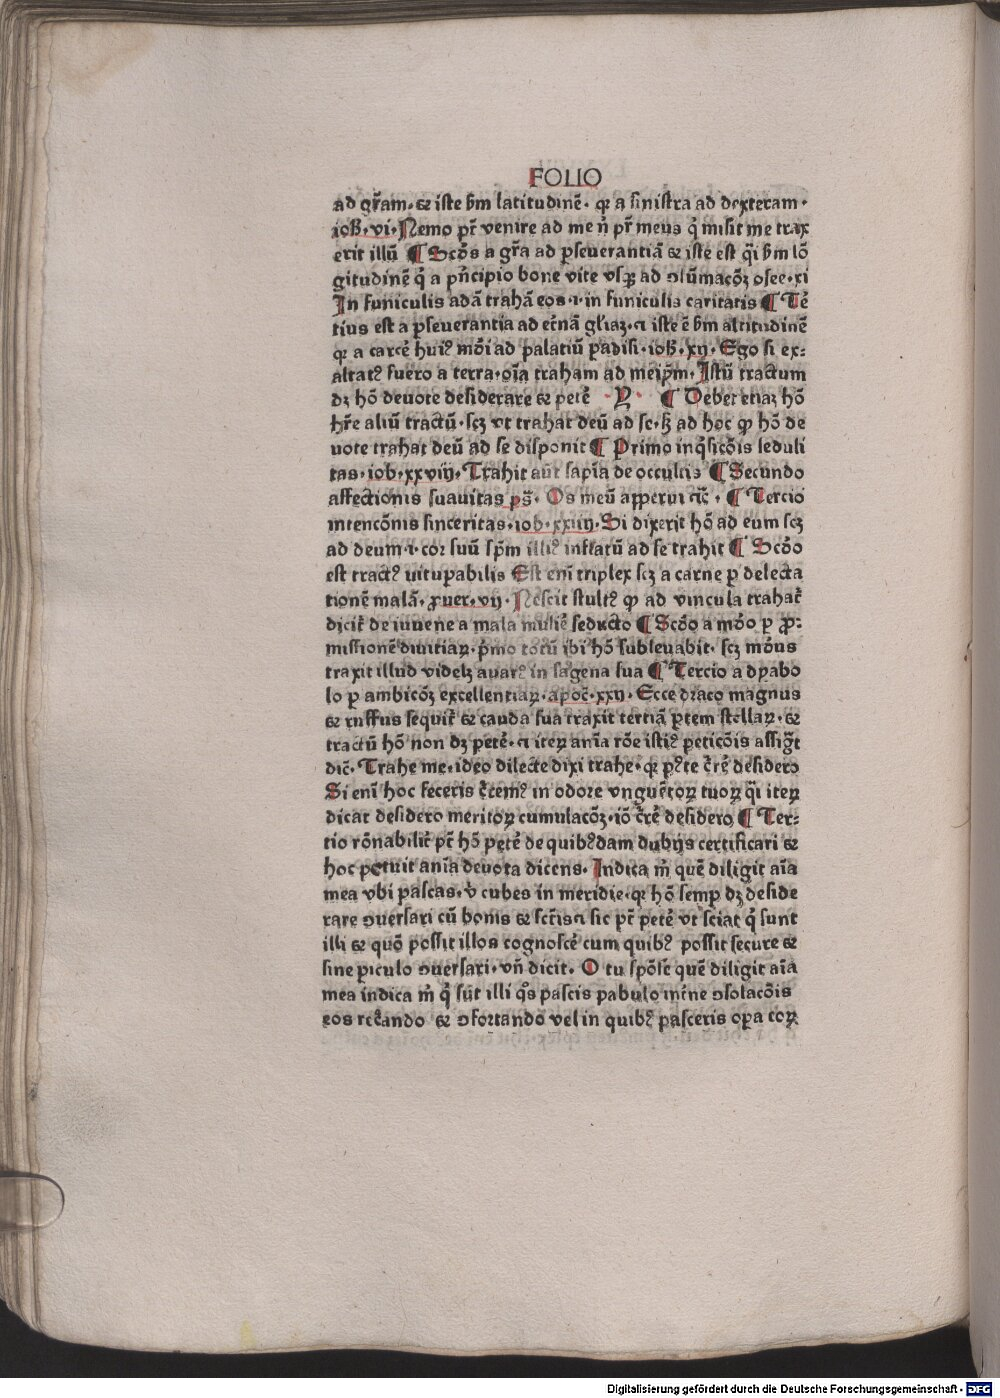 FOLIO
ad gr̃am·⁊ iste ẜm latitudinē· qꝛ a sinistra ad dexteram·
ioh̄·vi·Nemo pr̃ venire ad me n̄ pr̃ meus q̇ misit me trax
erit illū ¶ Scḋs a gr̃a ad ꝑseuerantiā ⁊ iste est q̄i ẜm lō
gitudinē q̇ a pñcipio bone vite vsqꝫ ad ꝯsūmacōꝫ osee·xi
In funiculis adā trahā eos·i·in funiculis caritatis ¶ Tē
tius est a ꝑseuerantia ad et̃nā gl̃iaꝫ·⁊ iste ē ẜm altitudinē
qꝛ a carcē huiꝰ mōi ad palatiū ꝑadisi·ioh̄·xij·Ego si ex⸗
altatꝰ fuero a terra·oīa traham ad meip̄m·Istū tractum
dꝫ hō deuote desiderare ⁊ petē · Y · ¶ Debet etiaꝫ hō
hr̃e aliū tractū·scꝫ vt trahat deū ad se·sꝫ ad hoc ꝙ hō de
uote trahat deū ad se disponit ¶ Primo inq̇sicōis seduli
tas·iob·xxviij·Trahit aūt sapīa de occultis ¶ Secundo
affectionis suauitas ps̄· Os meū apperui ⁊c̄ · ¶ Tercio
intencōnis sinceritas·iob·xxiiij·Si dixerit hō ad eum scꝫ
ad deum·i·cor suū sp̄m illiꝰ inflatū ad se trahit ¶ Scḋo
est tractꝰ uitupabilis Est eni triplex scꝫ a carne ꝑ delecta
tionē malā·ꝓuer·vij·Nescit stultꝰ ꝙ ad vincula trahat̃
dicit̃ de iuuene a mala muliē seducto ¶ Scḋo a mōo ꝑ ꝓ⸗
missionē diuitiaꝝ·pṁo totū ibi hō subleuabit·scꝫ mōus
traxit illud videlꝫ auarꝰ in sagena sua ¶ Tercio a dyabo
lo ꝑ ambicōꝫ excellentiaꝝ·apoc̄·xxij·Ecce draco magnus
⁊ ruffus sequit̃ ⁊ cauda sua traxit tertiā ꝑtem stellaꝝ·⁊
tractū hō non dꝫ petē·⁊ iteꝝ anīa rōe istiꝰ peticōis assig̃t
dic̄·Trahe me·ideo dilecte dixi trahe·qꝛ pꝰte c̄rē desidero
Si eni hoc feceris c̄remꝰ in odore vnguētoꝝ tuoꝝ q̄i iteꝝ
dicat desidero meritoꝝ cumulacōꝫ·iō c̄rē desidero ¶ Ter⸗
tio rōnabilit̃ pr̃ hō petē de quibꝰdam dubijs certificari ⁊
hoc petiuit anīa deuota dicens·Indica m̄ quē diligit aīa
mea vbi pascas·v̇ cubes in meridie·qꝛ hō semꝑ dꝫ deside
rare ꝯuersari cū bonis ⁊ scīs⁊ sic pr̃ petē vt sciat q̇ sunt
illi ⁊ quō possit illos cognoscē cum quibꝰ possit secure ⁊
sine ꝑiculo ꝯuersari·vn̄ dicit·O tu spōse quē diligit aīa
mea indica m̄ q̇ sūt illi q̊s pascis pabulo int̄ne ꝯsolacōis
eos recando ⁊ ꝯfortando vel in quibꝰ pasceris oꝑa coꝝ
Digitalisierung gefördert durch die Deutsche Forschungsgemeinschaft - DFG